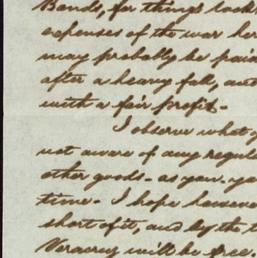 Bonds, for things look
expenses of the war her
may probably be pai
after a heavy fall, and
with a fair profit -
I observe what y
not aware of any regula
other goods - as you, yo
time - I hope however
short of it, and by the t
Veracruz will be free.